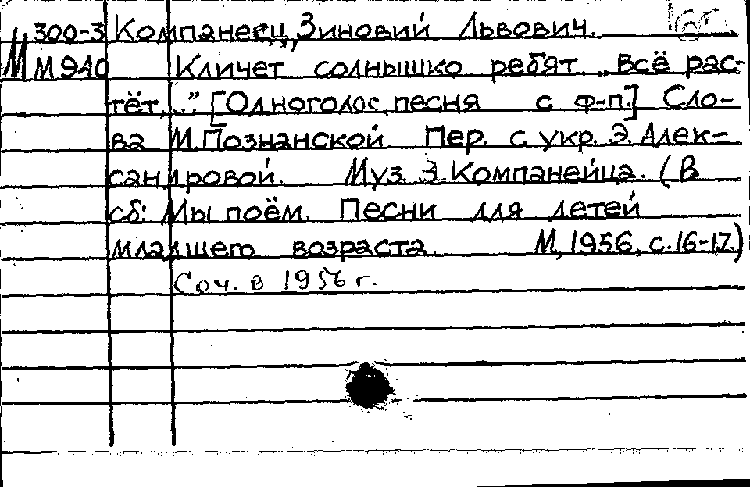 300-3 Компанеец, Зиновий Львович.
М М 940 Кличет солнышко ребят „Всё рас-
тёт..." [Одноголос. песня с ф-п.] Сло-
ва М. Познанской Пер. с укр. Э. Алек-
сандровой. Муз. З. Компанейца. (В
сб: Мы поём. Песни для детей
младшего возраста. М, 1956, с. 16-17.)
Соч. в 1956 г.